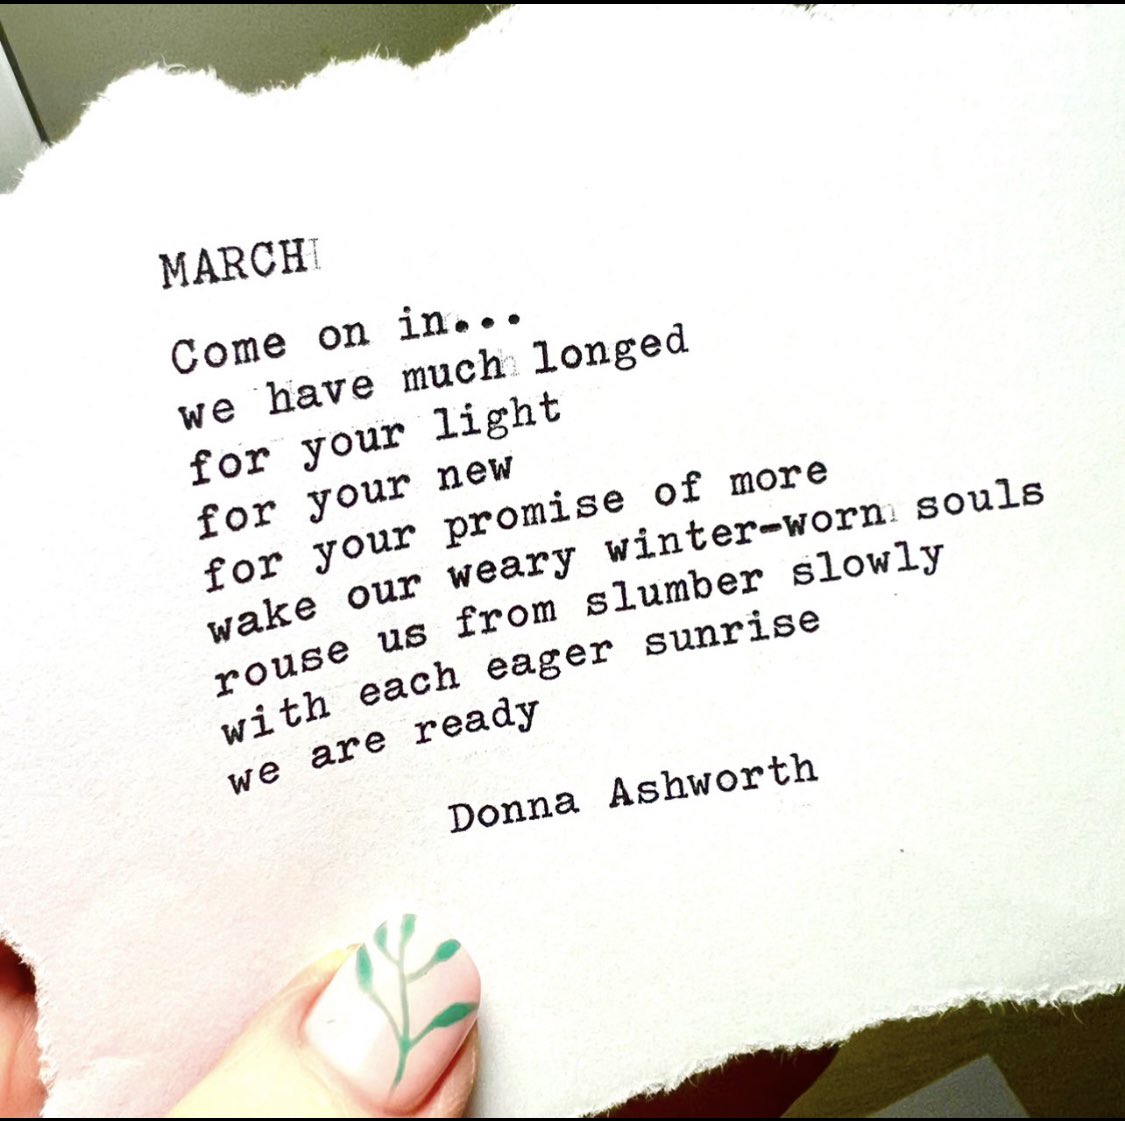 MARCH
Come on in...
we have much longed
for your light
for your new
for your promise of more
wake our weary winter-worn souls
rouse us from slumber slowly
with each eager sunrise
we are ready
Donna Ashworth